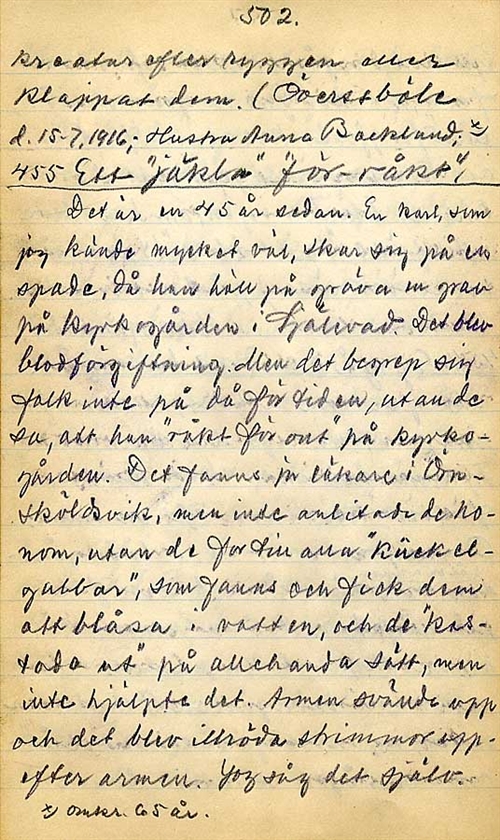 502.
kreatur efter ryggen eller
klappat dem. (Överssböle
d. 15-7, 1916; Hustru Anna Backlund; x)
455 Ett "jäkla" "för-råkt"/
Det är en 45 år sedan. En karl, som
jag kände mycket väl, skar sig på en
spade, då han höll på gräva en grav
på kyrkogården i Själevad. Det blev
blodförgiftning. Men det begrep sig
folk inte på då för tiden, utan de
sa, att han "råkt för ont" på kyrko-
gården. Det fanns ju läkare i Örn-
sköldsvik, men inte anlitade de ho-
nom, utan de for till alla "kuckel-
gubbar", som fanns och fick dem
att blåsa i vatten, och de "kas-
tade ut" på allehanda sätt, men
inte hjälpte det. Armen svände upp
och det blev illröda strimmor upp-
efter armen. Jag såg det själv.
x) omkr. 65 år.